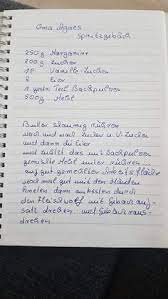 Oma Agnes
Spritzgebäck
250 g Margarine
200 g Zucker
1 P Vanille-Zucker
2 Eier
1 Teel Backpulver
500 g Mehl
Butter schaumig rühren
nach und nach Zucker u. V. Zucker
und dann die Eier
und zuletzt das mit Backpulver
gemischte Mehl unter rühren
auf gut gemehlter Arbeitsfläche
noch mal gut mit den Händen
kneten dann alles durch
den Fleischwolf mit Gebäckauf-
satz drehen und Gebäck aus-
drehen